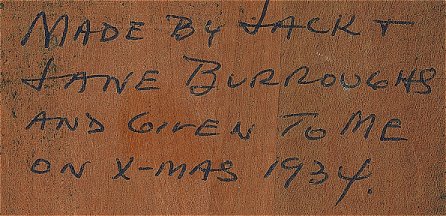 MADE BY JACK +
JANE BURROUGHS
AND GIVEN TO ME
ON X-MAS 1934.